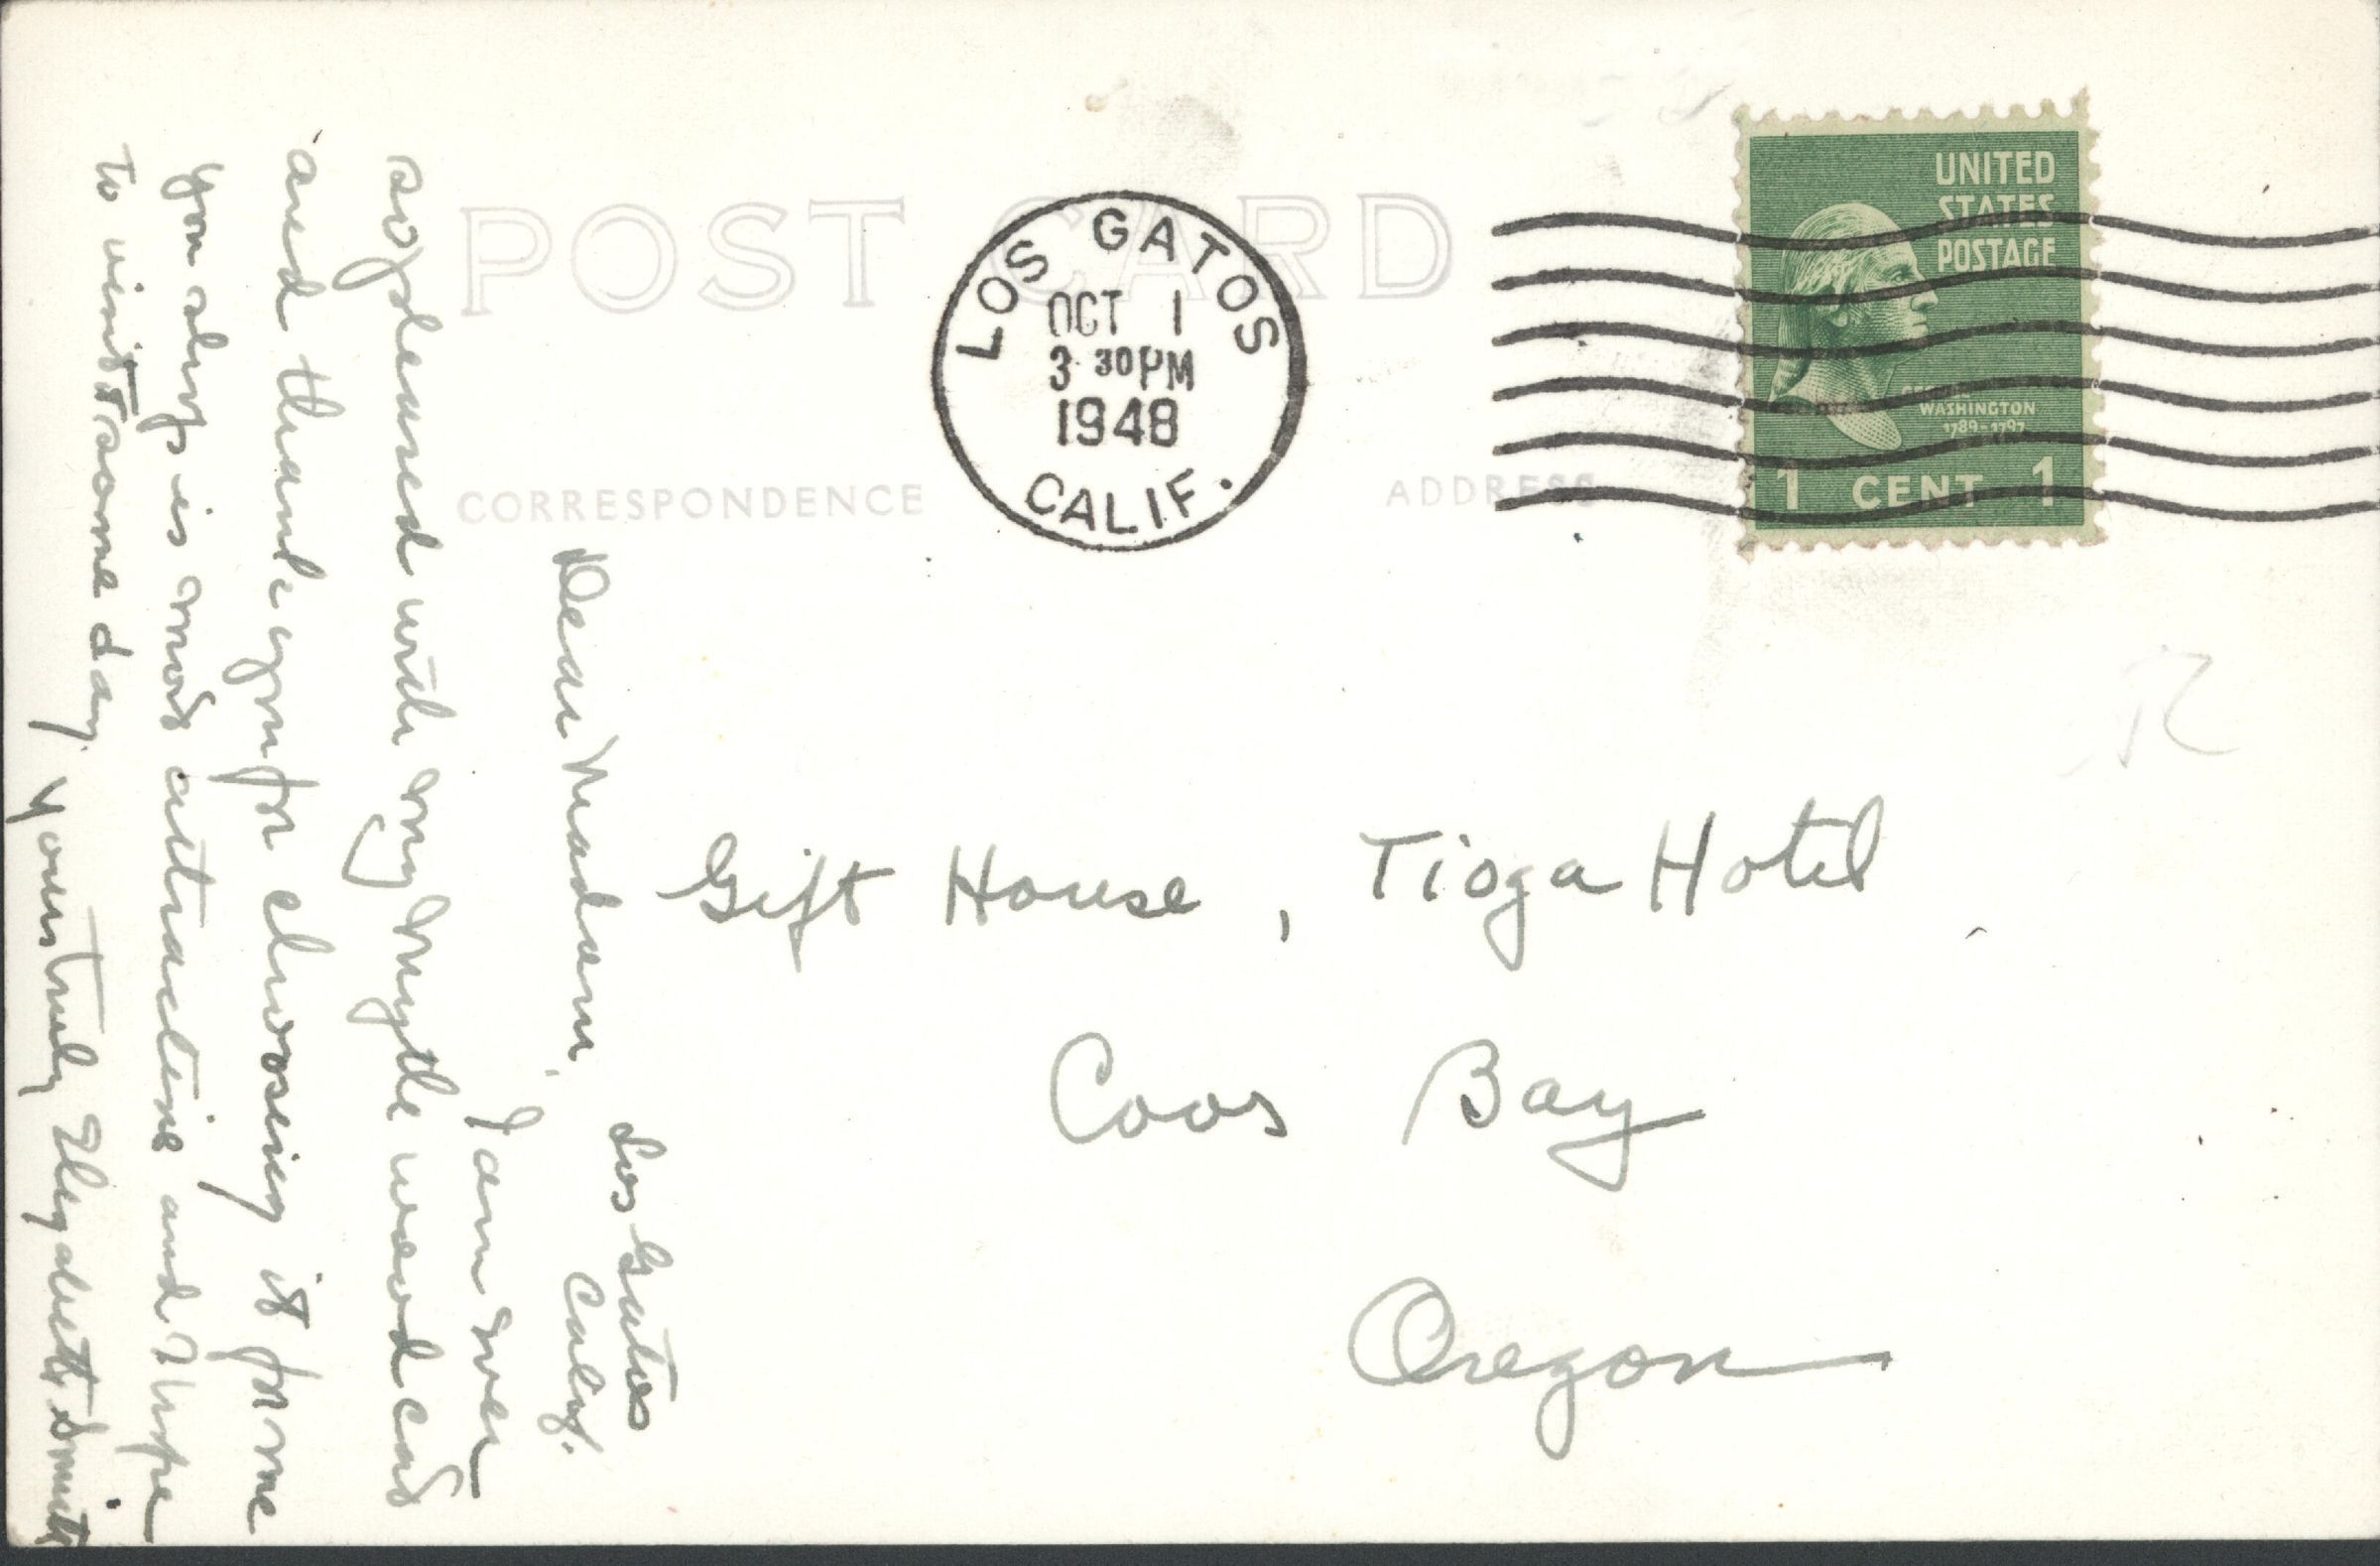 POST CARD
CORRESPONDENCE
ADDRESS
LOS GATOS
OCT 1
3 30PM
1948
CALIF.
UNITED
STATES
POSTAGE
GEORGE
WASHINGTON
1789-1797
1 CENT 1
Gift House, Tioga Hotel
Coos Bay
Oregon
Los Gatos
Calif.
Dear Madam,
I am ever
so pleased with my Myrtle wood card
and thank you for choosing it for me
You shop is most attractive and I hope
to visit it some day.
Yours truly Elizabeth Smith